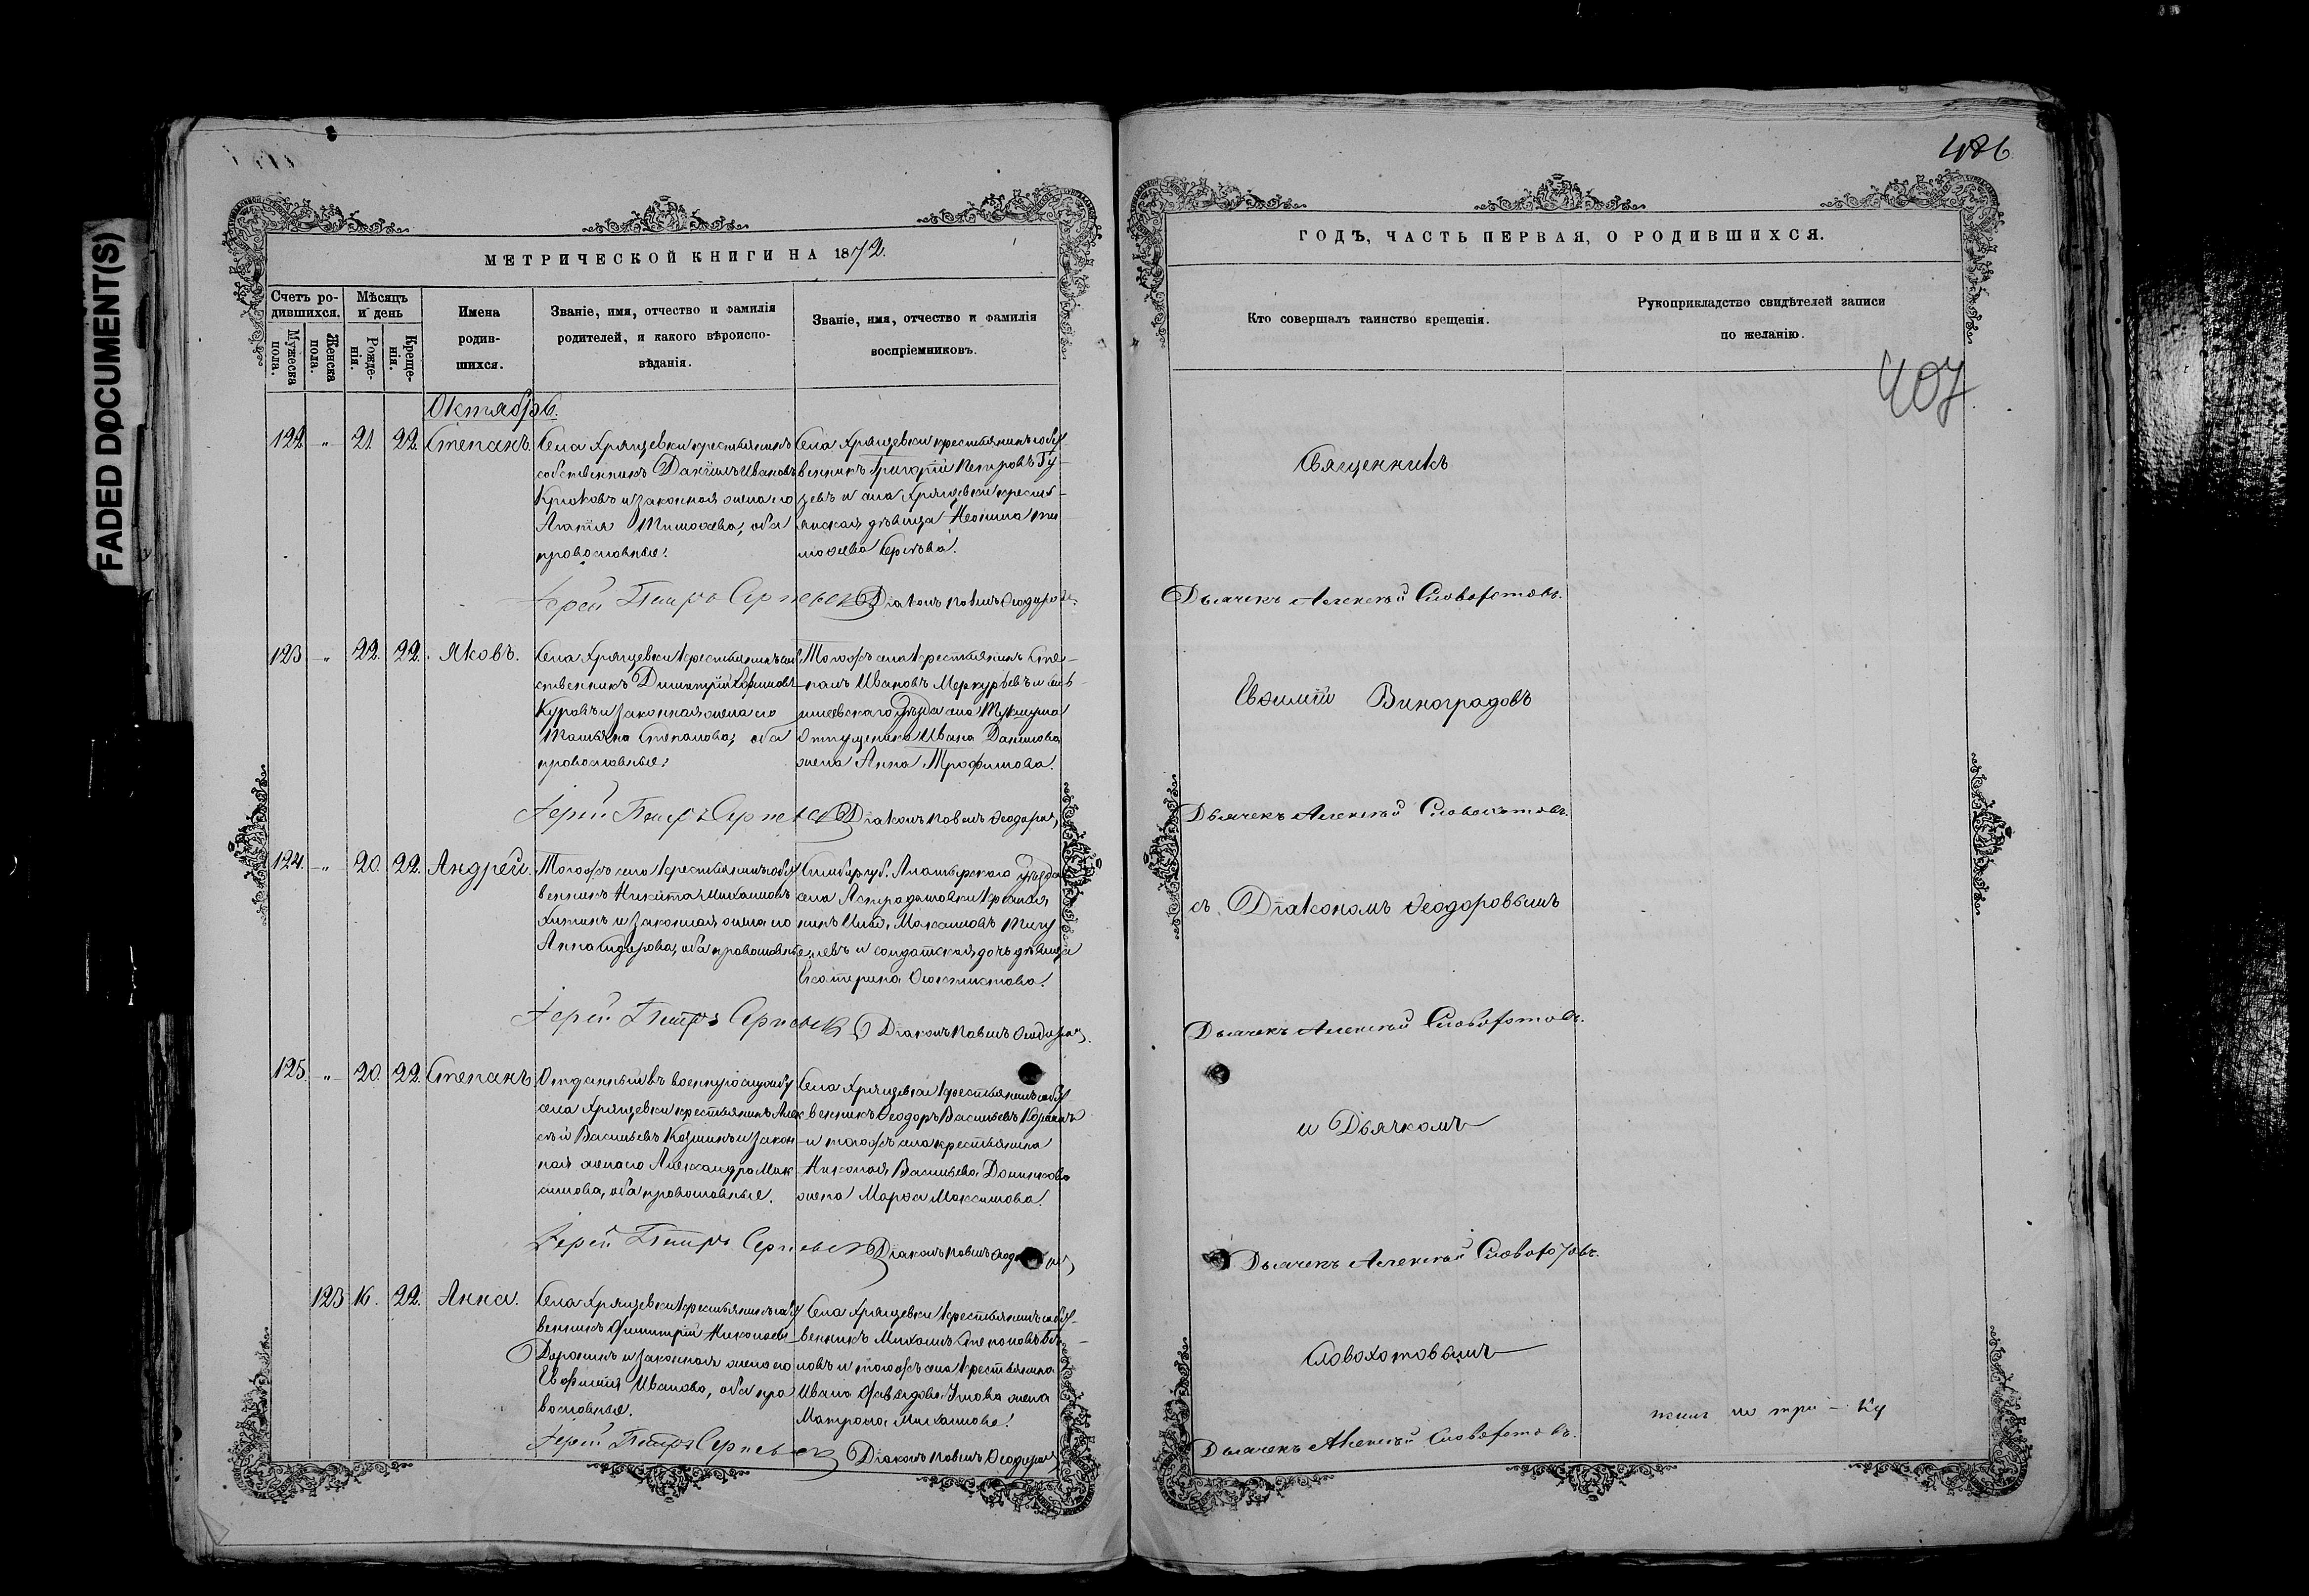 FADED DOCUMENT(S)
486
МЕТРИЧЕСКОЙ КНИГИ НА 1872.
Счетъ родившихся.
Мужеска пола.
Женска пола.
Мѣсяцъ и день
Рожденія.
Крещенія.
Имена родившихся.
Званіе, имя, отчество и фамилія
родителей, и какого вѣроиспо-
вѣданія.
Званіе, имя, отчество и фамилія
воспріемниковъ.
Октябрь.
122 „ 21. 22. Степанъ.
Села Хрящевки крестьянинъ
собственникъ Даніилъ Ивановъ
Крюковъ и законная жена его
Агапія Тимоѳеева, оба
православные.
Села Хрящевки крестьянинъ собст-
венникъ Григорій Петровъ Гу-
зевъ и села Хрящевки кресть-
янская дѣвица Неонила Ти-
моѳеева
Іерей Петръ Сергіевскій
Діаконъ Павелъ Ѳеодоровъ.
123 „ 22. 22. Яковъ.
Села Хрящевки крестьянинъ соб-
ственникъ Димитрій Ефимовъ
Куровъ и законная жена его
Татьяна Степанова, оба
православные.
Тогожъ села крестьянинъ Сте-
панъ Ивановъ Меркурьевъ и
уѣзда села
Ивана Данилова
жена Анна Трофимова.
Іерей Петръ Сергіевскій
Діаконъ Павелъ Ѳеодоровъ,
124. „ 20. 22. Андрей.
Тогожъ села крестьянинъ собст-
венникъ Никита Михайловъ
и законная жена его
Анна Сидорова, оба православные.
Симбир. губ. Алатырскаго уѣзда
села Астрадамовки крестья-
нинъ Илья Максимовъ
и солдатская дочь дѣвица
Екатерина Ѳеоктистова.
Іерей Петръ Сергіевскій
Діаконъ Павелъ Ѳеодоровъ.
125. „ 20. 22. Степанъ.
Отданный въ военную службу
села Хрящевки крестьянинъ Алек-
сѣй Васильевъ и закон-
ная жена его Александра Мак-
симова, оба православные.
Села Хрящевки крестьянинъ собст-
венникъ Ѳеодоръ Васильевъ
и тогожъ села крестьянина
Николая Васильева
жена Марѳа Максимова.
Іерей Петръ Сергіевскій
Діаконъ Павелъ
123 16. 22. Анна.
Села Хрящевки крестьянинъ собст-
венникъ Димитрій Николаевъ
Доронинъ и законная жена его
Евфимія Иванова, оба пра-
вославные.
Села Хрящевки крестьянинъ собст-
венникъ Михаилъ Степановъ
и тогожъ села крестьянина
Ивана жена
Матрона Михайлова.
Іерей Петръ Сергіевскій
Діаконъ Павелъ Ѳеодоровъ
ГОДЪ, ЧАСТЬ ПЕРВАЯ, О РОДИВШИХСЯ.
Кто совершалъ таинство крещенія.
Рукоприкладство свидѣтелей записи
по желанію.
407
Священникъ
Дьячекъ Алексѣй Словохотовъ.
Евѳимій Виноградовъ
Дьячекъ Алексѣй Словохотовъ.
съ Діакономъ Ѳеодоровымъ
Дьячекъ Алексѣй Словохотовъ.
и Дьячкомъ
Дьячекъ Алексѣй Словохотовъ.
Словохотовымъ
Дьячекъ Алексѣй Словохотовъ.